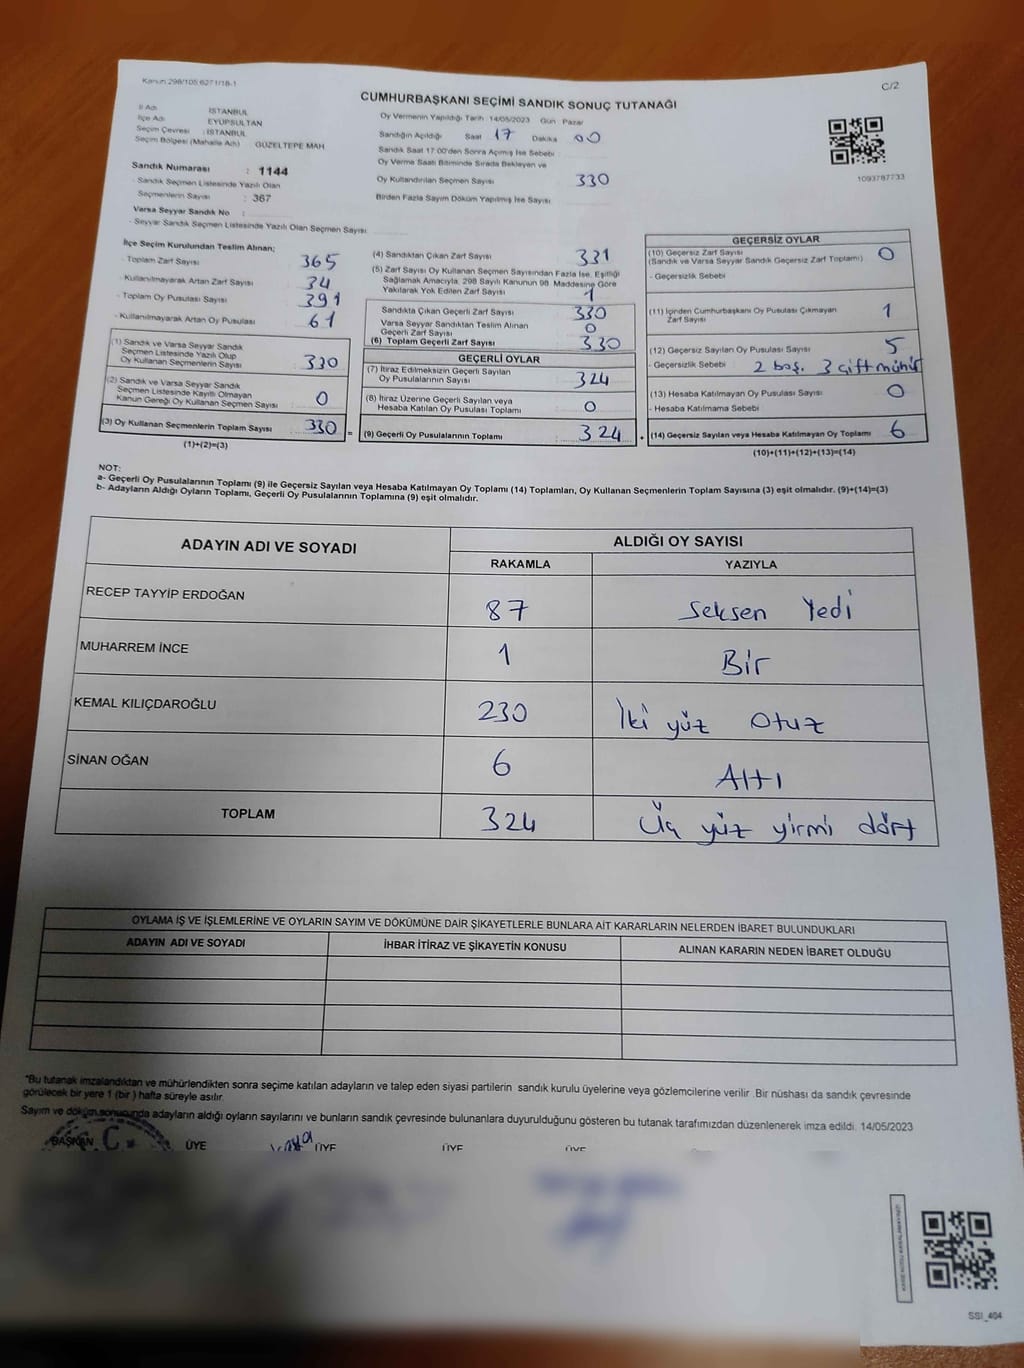 Kanun 298/105,6271/18-1
C/2
CUMHURBAŞKANI SEÇİMİ SANDIK SONUÇ TUTANAĞI
İl Adı : İSTANBUL
İlçe Adı : EYÜPSULTAN
Seçim Çevresi : İSTANBUL
Seçim Bölgesi (Mahalle Adı) GÜZELTEPE MAH
Sandık Numarası : 1144
- Sandık Seçmen Listesinde Yazılı Olan
Seçmenlerin Sayısı : 367
Varsa Seyyar Sandık No :
- Seyyar Sandık Seçmen Listesinde Yazılı Olan Seçmen Sayısı:
Oy Vermenin Yapıldığı Tarih 14/05/2023 Gün Pazar
Sandığın Açıldığı Saat 17 Dakika 00
Sandık Saat 17:00'den Sonra Açımış İse Sebebi
Oy Verme Saati Bitiminde Sırada Bekleyen ve
Oy Kullandırılan Seçmen Sayısı 330
Birden Fazla Sayım Döküm Yapılmış İse Sayısı
1093787733
İlçe Seçim Kurulundan Teslim Alınan;
- Toplam Zarf Sayısı 365
- Kullanılmayarak Artan Zarf Sayısı 34
- Toplam Oy Pusulası Sayısı 391
- Kullanılmayarak Artan Oy Pusulası 61
(1) Sandık ve Varsa Seyyar Sandık
Seçmen Listesinde Yazılı Olup
Oy Kullanan Seçmenlerin Sayısı 330
(2) Sandık ve Varsa Seyyar Sandık
Seçmen Listesinde Kayıtlı Olmayan
Kanun Gereği Oy Kullanan Seçmen Sayısı 0
(3) Oy Kullanan Seçmenlerin Toplam Sayısı 330 =
(1)+(2)=(3)
(4) Sandıktan Çıkan Zarf Sayısı 331
(5) Zarf Sayısı Oy Kullanan Seçmen Sayısından Fazla İse, Eşitliği
Sağlamak Amacıyla, 298 Sayılı Kanunun 98. Maddesine Göre
Yakılarak Yok Edilen Zarf Sayısı 1
Sandıkta Çıkan Geçerli Zarf Sayısı 330
Varsa Seyyar Sandıktan Teslim Alınan
Geçerli Zarf Sayısı 0
(6) Toplam Geçerli Zarf Sayısı 330
GEÇERLİ OYLAR
(7) İtiraz Edilmeksizin Geçerli Sayılan
Oy Pusulalarının Sayısı 324
(8) İtiraz Üzerine Geçerli Sayılan veya
Hesaba Katılan Oy Pusulası Toplamı 0
(9) Geçerli Oy Pusulalarının Toplamı 324 +
GEÇERSİZ OYLAR
(10) Geçersiz Zarf Sayısı 0
(Sandık ve Varsa Seyyar Sandık Geçersiz Zarf Toplamı)
- Geçersizlik Sebebi
(11) İçinden Cumhurbaşkanı Oy Pusulası Çıkmayan 1
Zarf Sayısı
(12) Geçersiz Sayılan Oy Pusulası Sayısı 5
- Geçersizlik Sebebi 2 boş. 3 çift mühür
(13) Hesaba Katılmayan Oy Pusulası Sayısı 0
- Hesaba Katılmama Sebebi
(14) Geçersiz Sayılan veya Hesaba Katılmayan Oy Toplamı 6
(10)+(11)+(12)+(13)=(14)
NOT:
a- Geçerli Oy Pusulalarının Toplamı (9) ile Geçersiz Sayılan veya Hesaba Katılmayan Oy Toplamı (14) Toplamları, Oy Kullanan Seçmenlerin Toplam Sayısına (3) eşit olmalıdır. (9)+(14)=(3)
b- Adayların Aldığı Oyların Toplamı, Geçerli Oy Pusulalarının Toplamına (9) eşit olmalıdır.
ADAYIN ADI VE SOYADI ALDIĞI OY SAYISI
RAKAMLA YAZIYLA
RECEP TAYYİP ERDOĞAN 87 Seksen Yedi
MUHARREM İNCE 1 Bir
KEMAL KILIÇDAROĞLU 230 İki yüz Otuz
SİNAN OĞAN 6 Altı
TOPLAM 324 Üç yüz yirmi dört
OYLAMA İŞ VE İŞLEMLERİNE VE OYLARIN SAYIM VE DÖKÜMÜNE DAİR ŞİKAYETLERLE BUNLARA AİT KARARLARIN NELERDEN İBARET BULUNDUKLARI
ADAYIN ADI VE SOYADI İHBAR İTİRAZ VE ŞİKAYETİN KONUSU ALINAN KARARIN NEDEN İBARET OLDUĞU
*Bu tutanak imzalandıktan ve mühürlendikten sonra seçime katılan adayların ve talep eden siyasi partilerin sandık kurulu üyelerine veya gözlemcilerine verilir. Bir nüshası da sandık çevresinde
görülecek bir yere 1 (bir) hafta süreyle asılır.
Sayım ve döküm sonucunda adayların aldığı oyların sayılarını ve bunların sandık çevresinde bulunanlara duyurulduğunu gösteren bu tutanak tarafımızdan düzenlenerek imza edildi. 14/05/2023
BAŞKAN ÜYE ÜYE ÜYE ÜYE
SSI_404